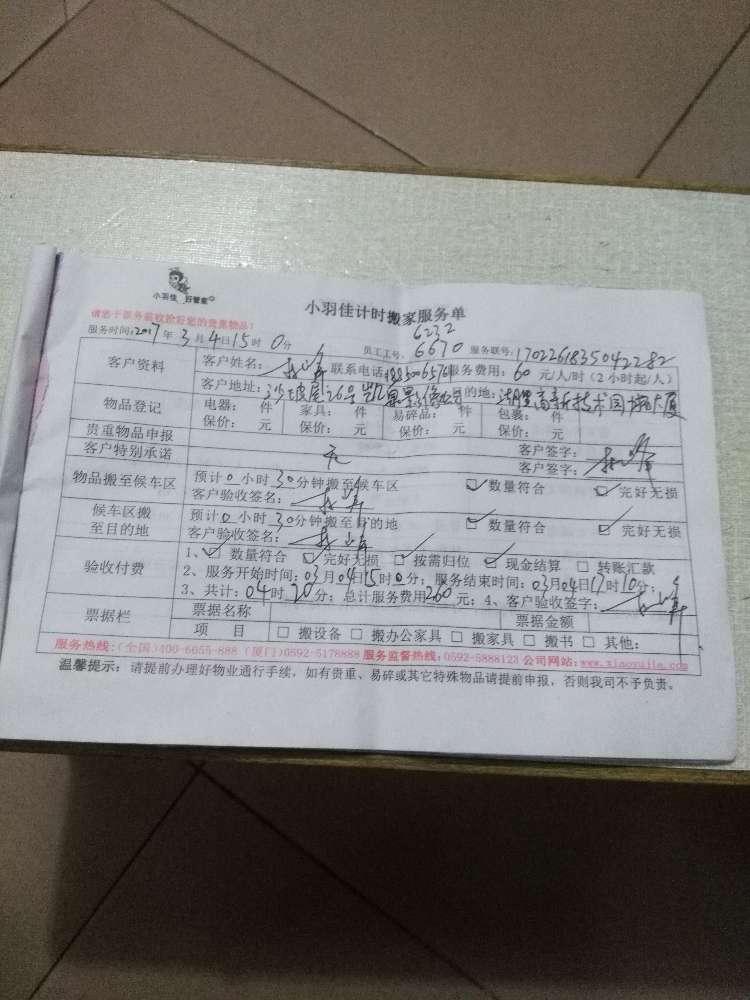 小羽佳 好管家
小羽佳计时搬家服务单
请您于服务前收捡好您的贵重物品!
6232
服务时间:2017年3月4日15时0分 员工工号: 6670 服务联号:1702261835042282
客户资料 客户姓名: 联系电话 服务费用: 60 元/人/时(2小时起/人)
客户地址: 目的地:
物品登记 电器: 件 家具: 件 易碎品: 件 包裹: 件
保价: 元 保价: 元 保价: 元 保价: 元
贵重物品申报 无 客户签字:
客户特别承诺 客户签字:
物品搬至候车区 预计0小时30分钟搬至候车区 数量符合 完好无损
客户验收签名:
候车区搬至目的地 预计0小时30分钟搬至目的地 数量符合 完好无损
客户验收签名:
验收付费 1、数量符合 完好无损 按需归位 现金结算 转账汇款
2、服务开始时间:03月04日15时0分; 服务结束时间:03月04日17时10分;
3、共计:04时20分; 总计服务费用260元; 4、客户验收签字:
票据栏 票据名称 票据金额
项 目 搬设备 搬办公家具 搬家具 搬书 其他:
服务热线:(全国)400-6055-888 (厦门)0592-5178888 服务监督热线:0592-5888123 公司网站:www.xiaoyujia.com
温馨提示: 请提前办理好物业通行手续, 如有贵重、易碎或其它特殊物品请提前申报, 否则我司不予负责。